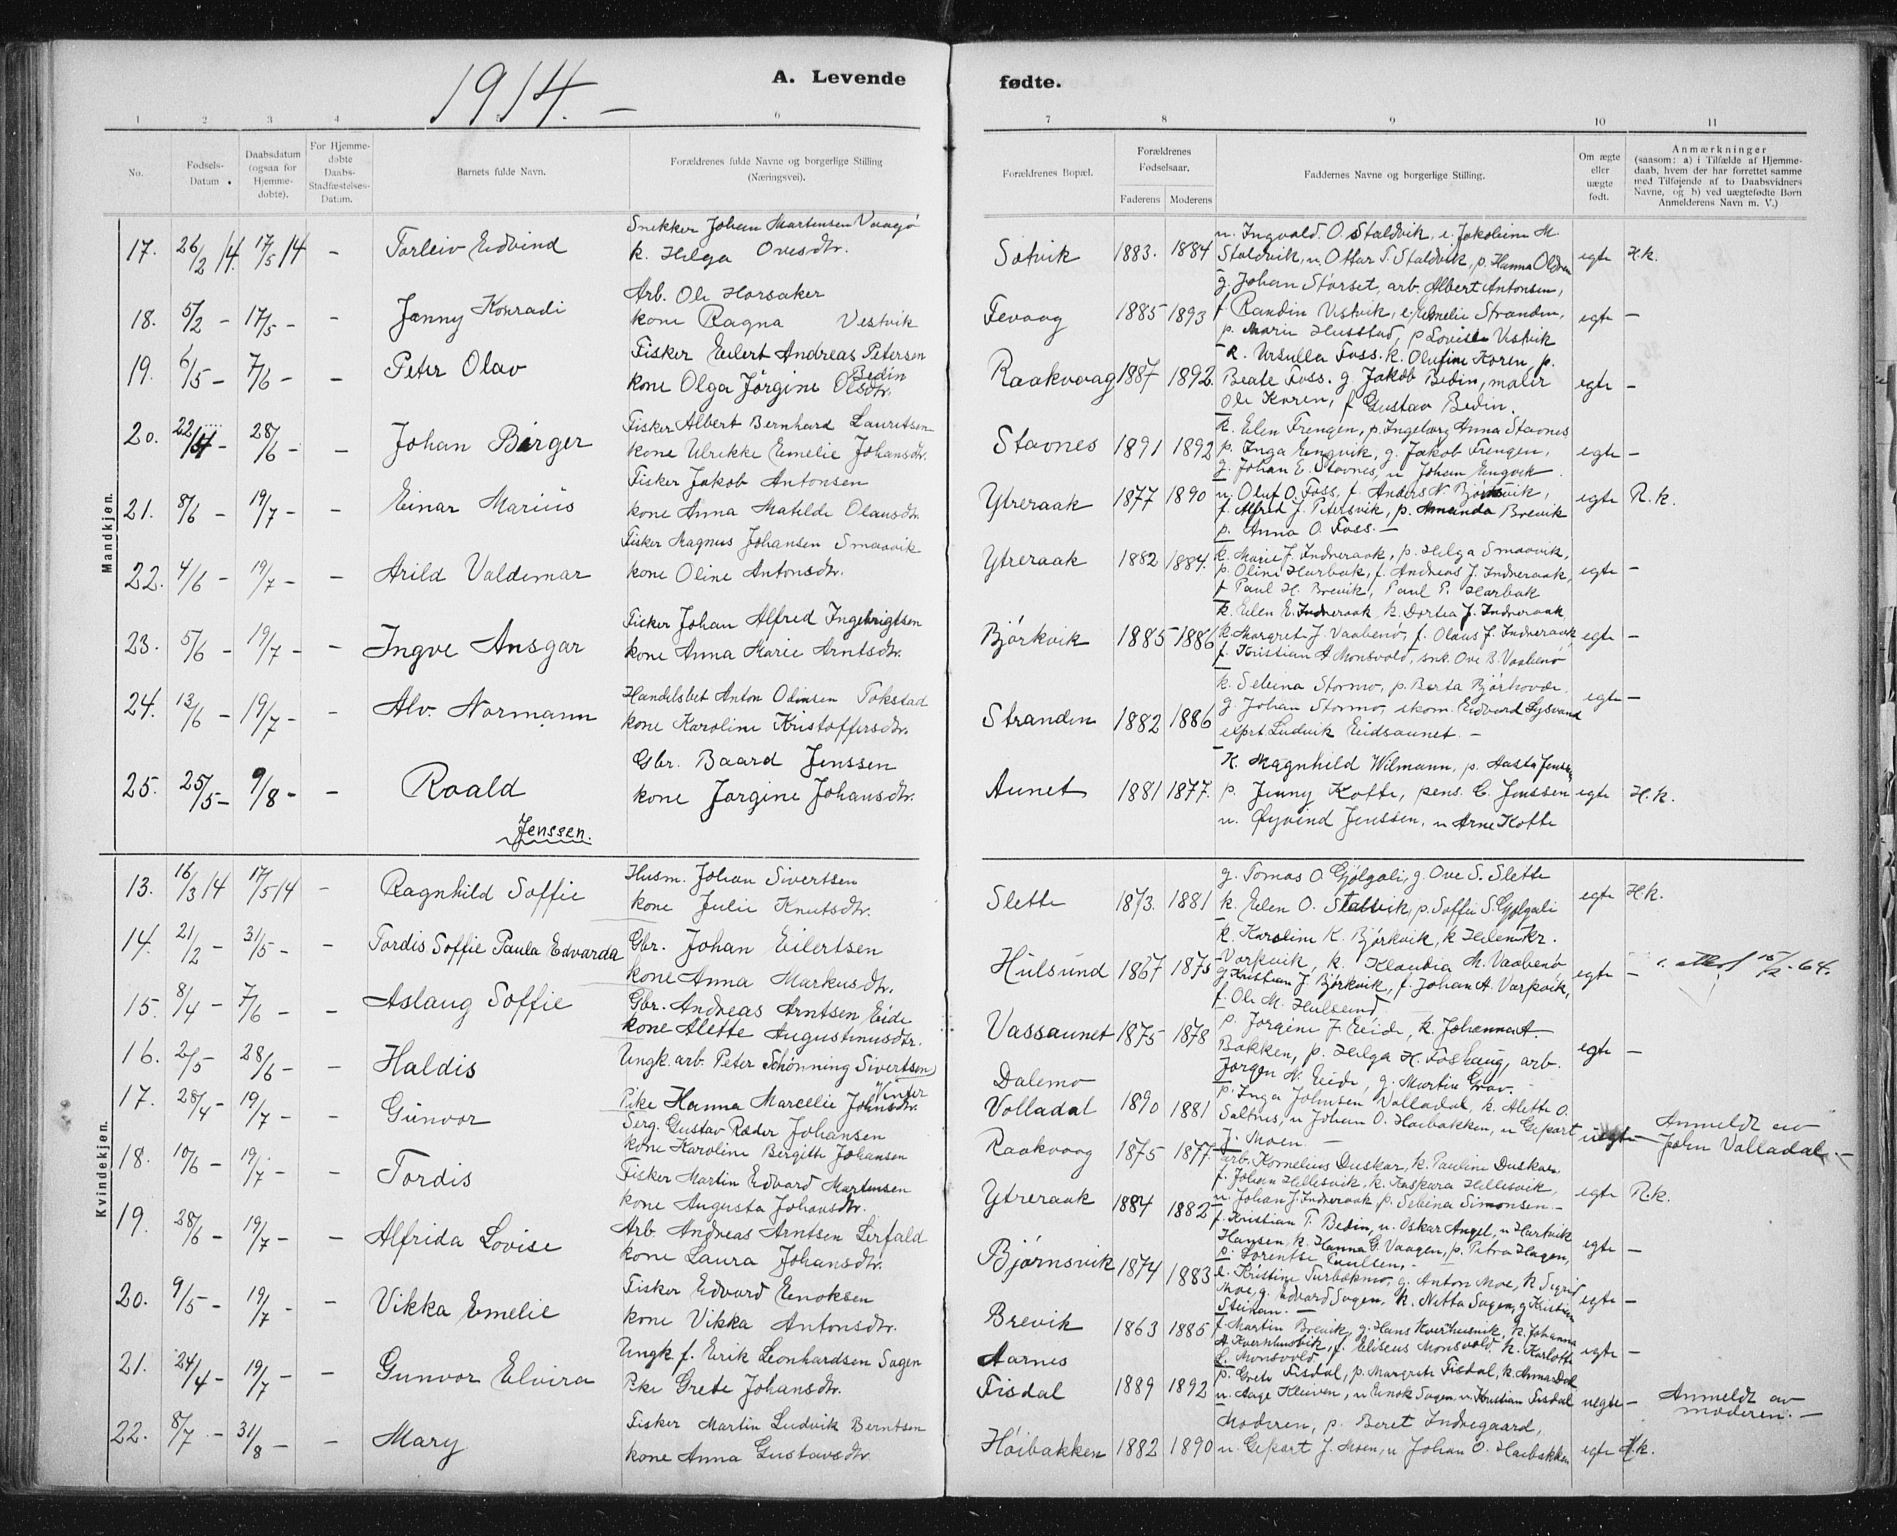 1914. —
A. Levende fødte.
1 2 3 4 5 6 7 8 9 10 11
No.
Fødsels-Datum.
Daabsdatum (ogsaa for Hjemme-døbte).
For Hjemme-døbte Daabs-Stadfæstelses-Datum.
Barnets fulde Navn.
Forældrenes fulde Navne og borgerlige Stilling (Næringsvei).
Forældrenes Bopæl.
Forældrenes Fødselsaar.
Faderens Moderens
Faddernes Navne og borgerlige Stilling.
Om ægte eller uægte født.
Anmærkninger
(saasom: a) i Tilfælde af Hjemme-
daab, hvem der har forrettet samme
med Tilføjende af to Daabsvidners
Navne, og b) ved uægtefødte Børn
Anmelderens Navn m. V.)
Mandkjøn.
17. 26/2 14. 17/5 14 — Torleiv Eidvind
Snekker Johan Martensen Vaagø
k. Helga Ovesdtr.
Sætvik 1883. 1884
u. Ingvald O. Staldvik, e. Jakobine M.
Staldvik, u. Ottar T. Staldvik, p. Hanna Olden
egte H.k.
18. 5/2 — 17/5 — — Jenny Konradi
Arb. Ole Horsaker
kone Ragna Vestvik
Fevaag 1885 1893
g. Johan Størset, arb. Albert Antonsen,
f Randin Vestvik, e. Emelie Stranden,
p. Marie Husstad, p Lovise Vestvik
egte —
19. 6/5 — 7/6 — — Peter Olav
Fisker Eilert Andreas Petersen
Bedin
kone Olga Jørgine Olsdtr.
Raakvaag 1887 1892.
k. Ursulla Foss. k. Olufine Koren, p.
Beate Foss. g Jakob Bedin, maler
Ole Koren, f Gustav Bedin.
egte —
20. 22/4 — 28/6 — — Johan Birger
Fisker Albert Bernhard Lauritsen
kone Ulrikke Emelie Johansdtr.
Stavnes 1891 1892
k. Elen Frengen, p. Ingeborg Anna Stavnes
p. Inga Engvik, g. Jakob Frengen,
g. Johan E. Stavnes, u Johan Engvik.
egte —
21. 8/6 — 19/7 — — Einar Marius
Fisker Jakob Antonsen
kone Anna Matilde Olausdtr.
Ytreraak 1877 1890
u. Oluf O. Foss, f. Anders N Bjørnsvik,
f. Alfred J. Petersvik, p. Amanda Brevik
p. Anna O. Foss. —
egte R.k.
22. 4/6 — 19/7 — — Arild Valdemar
Fisker Magnus Johansen Smaavik
kone Oline Antonsdtr.
Ytreraak 1882 1884.
k. Marie J. Indreraak, p. Helga Smaavik,
p. Oline Harbak, f. Andreas J. Indreraak,
f Paul H. Brevik, Paul P. Harbak
egte —
23. 5/6 — 19/7 — — Ingve Ansgar
Fisker Johan Alfred Ingebrigtsen
kone Anna Marie Arntsdtr.
Bjørkvik 1885 1886
k. Elen E. Indreraak, k. Dortea J. Indreraak
k. Margrete J. Vaabenø, f. Olaus J. Indreraak
f. Kristian A Monsvold, snk. Ove B. Vaabenø
egte —
24. 13/6 — 19/7 — — Alv. Normann
Handelsbet Anton Odinsen Tokstad
kone Karoline Kristoffersdtr.
Stranden 1882 1886
k. Selina Stormo, p. Berta Bjørhovde
g. Johan Stormo, skom. Eidvard Lysvand
exprt Ludvik Eidsaunet —
egte —
25. 25/5 — 9/8 — — Roald
Jenssen.
Gbr. Baard Jenssen
kone Jørgine Johansdtr.
Aunet 1881 1877.
K. Magnhild Wilmann, p. Aasta Jenssen
p. Jenny Kotte, pens. C. Jenssen
u. Øyvind Jenssen, u Arne Kotte
egte H.k.
Kvindekjøn.
13. 16/3 14 17/5 14 — Ragnhild Soffie
Husm. Johan Sivertsen
kone Julie Knutsdtr.
Slette 1873. 1881
g. Tomas O. Gjølgali, g. Ove S. Slette
k. Elen O. Stallvik, p. Soffie S. Gjølgali
egte H.k.
14. 21/2 — 31/5 — — Tordis Soffie Paula Edvarda
Gbr. Johan Eilertsen
kone Anna Markusdtr.
Hulsund 1867 1875
k. Karoline K. Bjørkvik, k Helen Kr.
Varkvik, k. Klaudia M. Vaabenø
g Kristian J. Bjørkvik, f. Johan A. Varkvik,
f. Ole M. Hulsund. —
egte —
15. 8/4 — 7/6 — — Aslaug Soffie
Gbr. Andreas Arntsen Eide
kone Alette Augustinusdtr.
Vassaunet 1875 1878
p. Jørgine J. Eide, k. Johanna A.
Bakken, p. Helga H. Foshaug, arb.
Jørgen N. Eide, g. Martin Grav.
egte —
16. 2/5 — 28/6 — — Haldis
Ungk. arb. Peter Schønning Sivertsen
Vinter
Pike Hanna Marcelie Johnsdtr.
Dalemo
Volladal 1890 1881
p. Inga Johnsen Volladal, k. Alette O.
Saltnes, u Johan O. Høibakken, u Gepart
J. Moen —
uegte —
Anmeldt av
John Valladal. —
17. 28/4 — 19/7 — — Gunvor
Serg. Gustav Ræder Johansen
kone Karoline Birgitte Johansen
Raakvaag 1875 1877
arb. Kornelius Duskar, k. Pauline Duskar
f. Johan Hellesvik, k. Kaspara Hellesvik,
u Johan J. Indreraak p. Sebina Simonsen —
egte R.k.
18. 10/6 — 19/7 — — Tordis
Fisker Martin Edvard Martinsen
kone Augusta Johansdtr.
Ytreraak 1884 1882
f. Kristian T. Bedin, u. Oskar Angel, u Hartvik
Hansen, k. Hanna G. Vaagen, p. Petra Hagen,
p. Lorentse Paulsen. —
egte —
19. 28/6 — 19/7 — — Alfrida Lovise
Arb. Andreas Arntsen Lerfald
kone Laura Johansdtr.
Bjørnsvik 1874 1883
e. Kristine Turbækmo, g. Anton Moe, k. Sigrid
Moe, g. Edvard Sagen, k. Nitta Sagen, g Kristian
Steinan. —
egte —
20. 9/5 — 19/7 — — Vikka Emelie
Fisker Edvard Enoksen
kone Vikka Antonsdtr.
Brevik 1863 1885
f. Martin Brevik, g. Hans Kverhusvik, k. Johanna
A Kvernhusvik, f. Eliseus Monsvold, k. Karlotte
L. Monsvold.
egte —
21. 24/4 — 19/7 — — Gunvor Elvira
Ungk f. Erik Leonhardsen Sagen
Pike Grete Johansdtr.
Aarnes
Fisdal 1889 1892
p. Grete Fisdal, p. Margrete Fisdal, k. Anna Dal
u. Aage Kleiven, u Enok Sagen u. Kristian Fisdal
uegte —
Anmeldt av
moderen. —
22. 8/7 — 31/8 — — Mary
Fisker Martin Ludvik Berntsen
kone Anna Gustavsdtr.
Høibakken 1882 1890
Moderen, p. Beret Indregaard,
u. Gepart J. Moen, u Johan O. Høibakken
egte H.k.